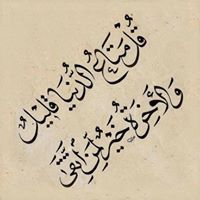 قُلْ مَتَاعُ الدُّنْيَا قَلِيلٌ
وَالْآخِرَةُ خَيْرٌ لِّمَنِ اتَّقَىٰ